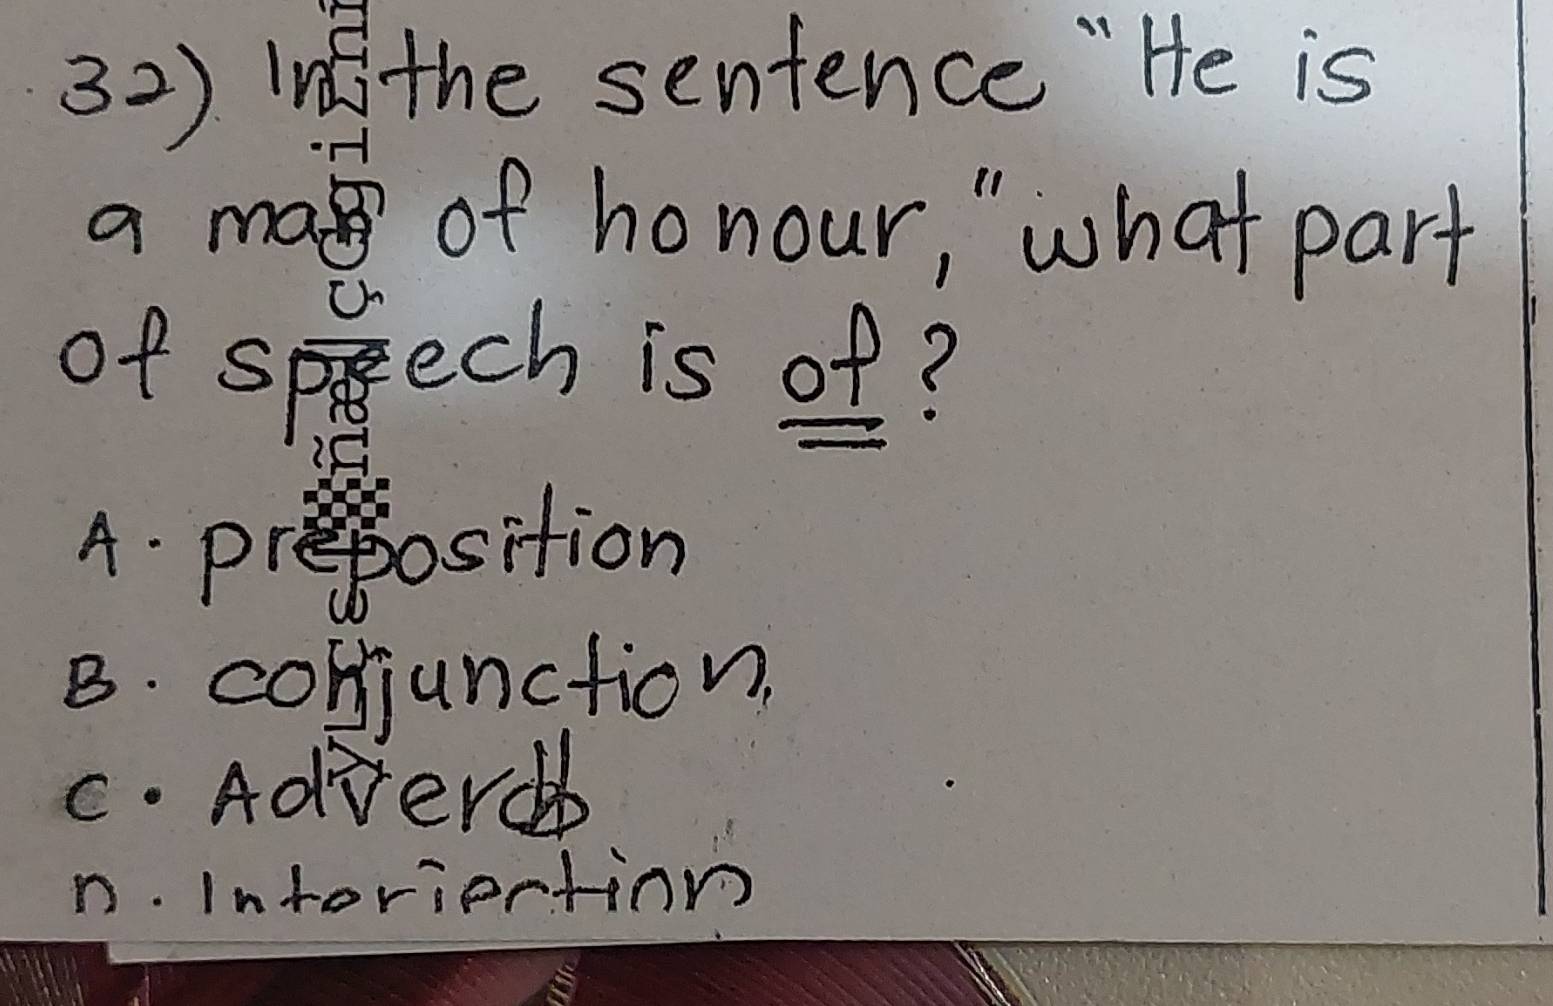 32). In the sentence "He is
a man of honour," what part
of speech is of?
A. preposition
B. conjunction,
C. Adverb
D. Interjection